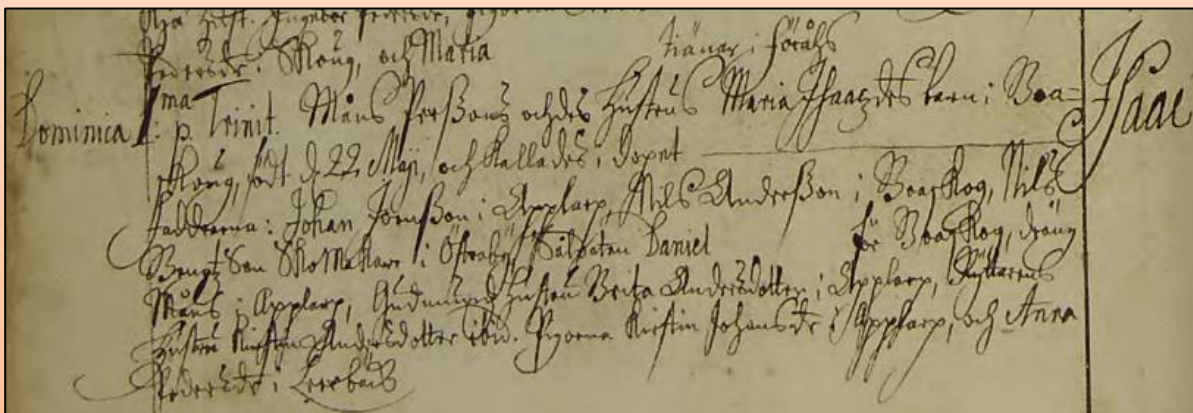 Hust. Ingebor Pedersdr,
Pedersdr i Skoug, och Maria tiänar i Föråhs
Dominica 1ma p. Trinit. Måns Perßons och des Hustrus Maria Isaacz des barn i Boa=
Skoug, född d. 22 Maji, och Kallades i dopet Isaac
Faddrarna: Johan Jönßon i Applarp, Nils Anderßon i Boaskog, Nils
Bengtz Son Skomakare i Össraby, Såldaten Daniel för Boaskog, dräng
Måns i Applarp, Gudmunds Hustru Brita Andersdotter i Applarp, Ryttarens
Hustru Kirstin Andersdotter ibid. Pigorna Kirstin Johansdr i Applarp, och Anna
Pedersdr i Leerbäck